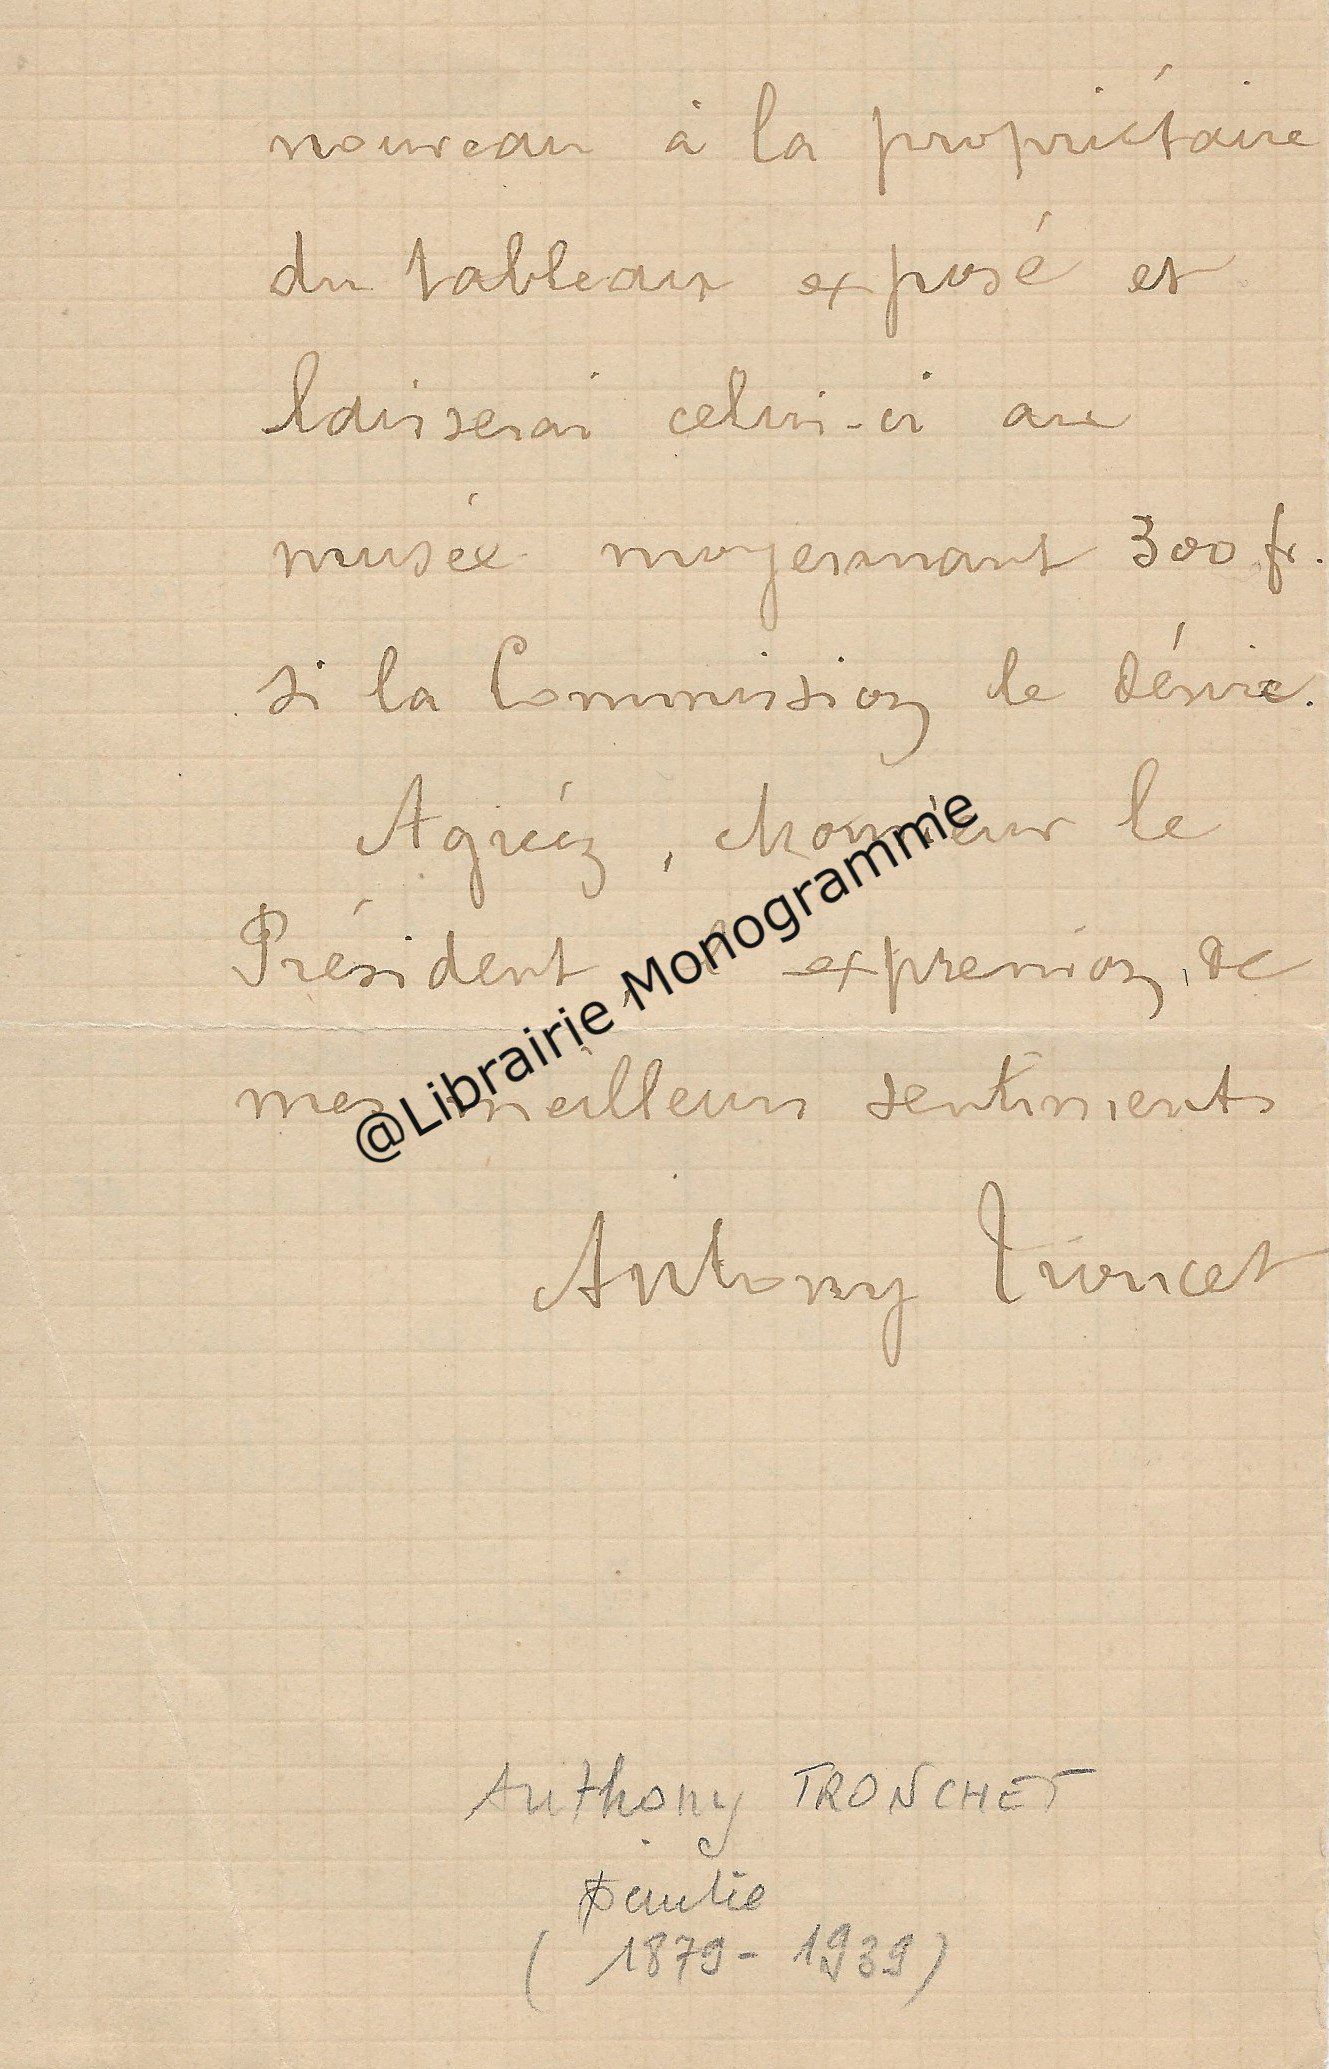 nouveau à la propriétaire
du tableau exposé et
laisserai celui-ci au
musée moyennant 300 fr.
si la Commission le désire.
Agréez, Monsieur le
Président, l'expression de
mes meilleurs sentiments
Antony Troncet
@Librairie Monogramme
Anthony TRONCHET
peintre
(1879-1939)